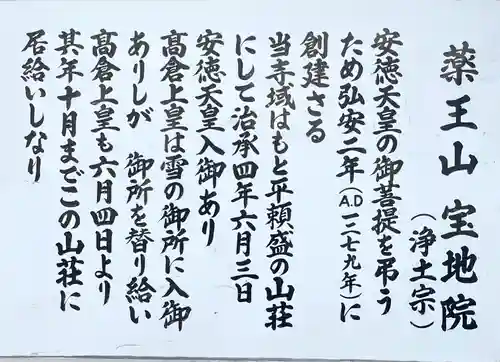 薬王山 宝地院
(浄土宗)
安徳天皇の御菩提を弔う
ため弘安二年(A.D一二七九年)に
創建さる
当寺域はもと平頼盛の山荘
にして治承四年六月三日
安徳天皇入御あり
高倉上皇は雪の御所に入御
ありしが 御所を替り給い
高倉上皇も六月四日より
其年十月までこの山荘に
居給いしなり